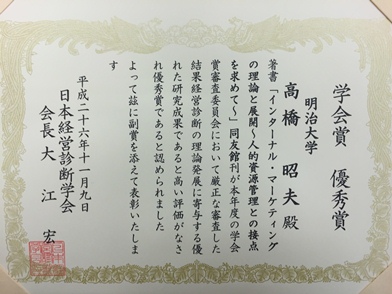 学会賞 優秀賞
明治大学
高橋 昭夫 殿
著書「インターナル・マーケティング
の理論と展開〜人的資源管理との接点
を求めて〜」同友館刊が本年度の学会
賞審査委員会において厳正な審査した
結果経営診断の理論発展に寄与する優
れた研究成果であると高い評価がなさ
れ優秀賞であると認められました
よって茲に副賞を添えて表彰いたしま
す
平成二十六年十一月九日
日本経営診断学会
会長 大江 宏